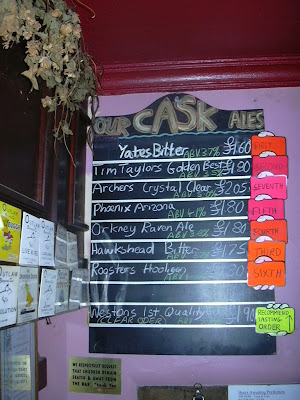 OUR CASK ALES
Yates Bitter ABV 3.7% £1.60 FIRST
Tim Taylors Golden Best £1.80 SECOND
Archers Crystal Clear £2.05 SEVENTH
Phoenix Arizona ABV 4.1% £1.80 FIFTH
Orkney Raven Ale £1.80 FOURTH
Hawkshead Bitter £1.75 THIRD
Roosters Hooligan ABV SIXTH
Westons 1st Quality £1.90 RECOMMENDED TASTING ORDER
CIDER
WE RESPECTFULLY REQUEST
THAT CHILDREN REMAIN
SEATED & AWAY FROM
THE BAR
OUTLAW
OUTLAW